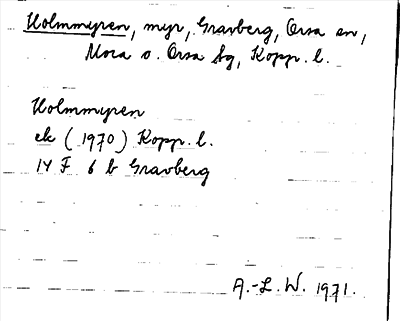 Holmmyren, myr, Gravberg, Orsa sn,
Mora o. Orsa tg, Kopp. l.
Holmmyren
ek (1970) Kopp. l.
14 F 6 b Gravberg
A.-L. W. 1971.